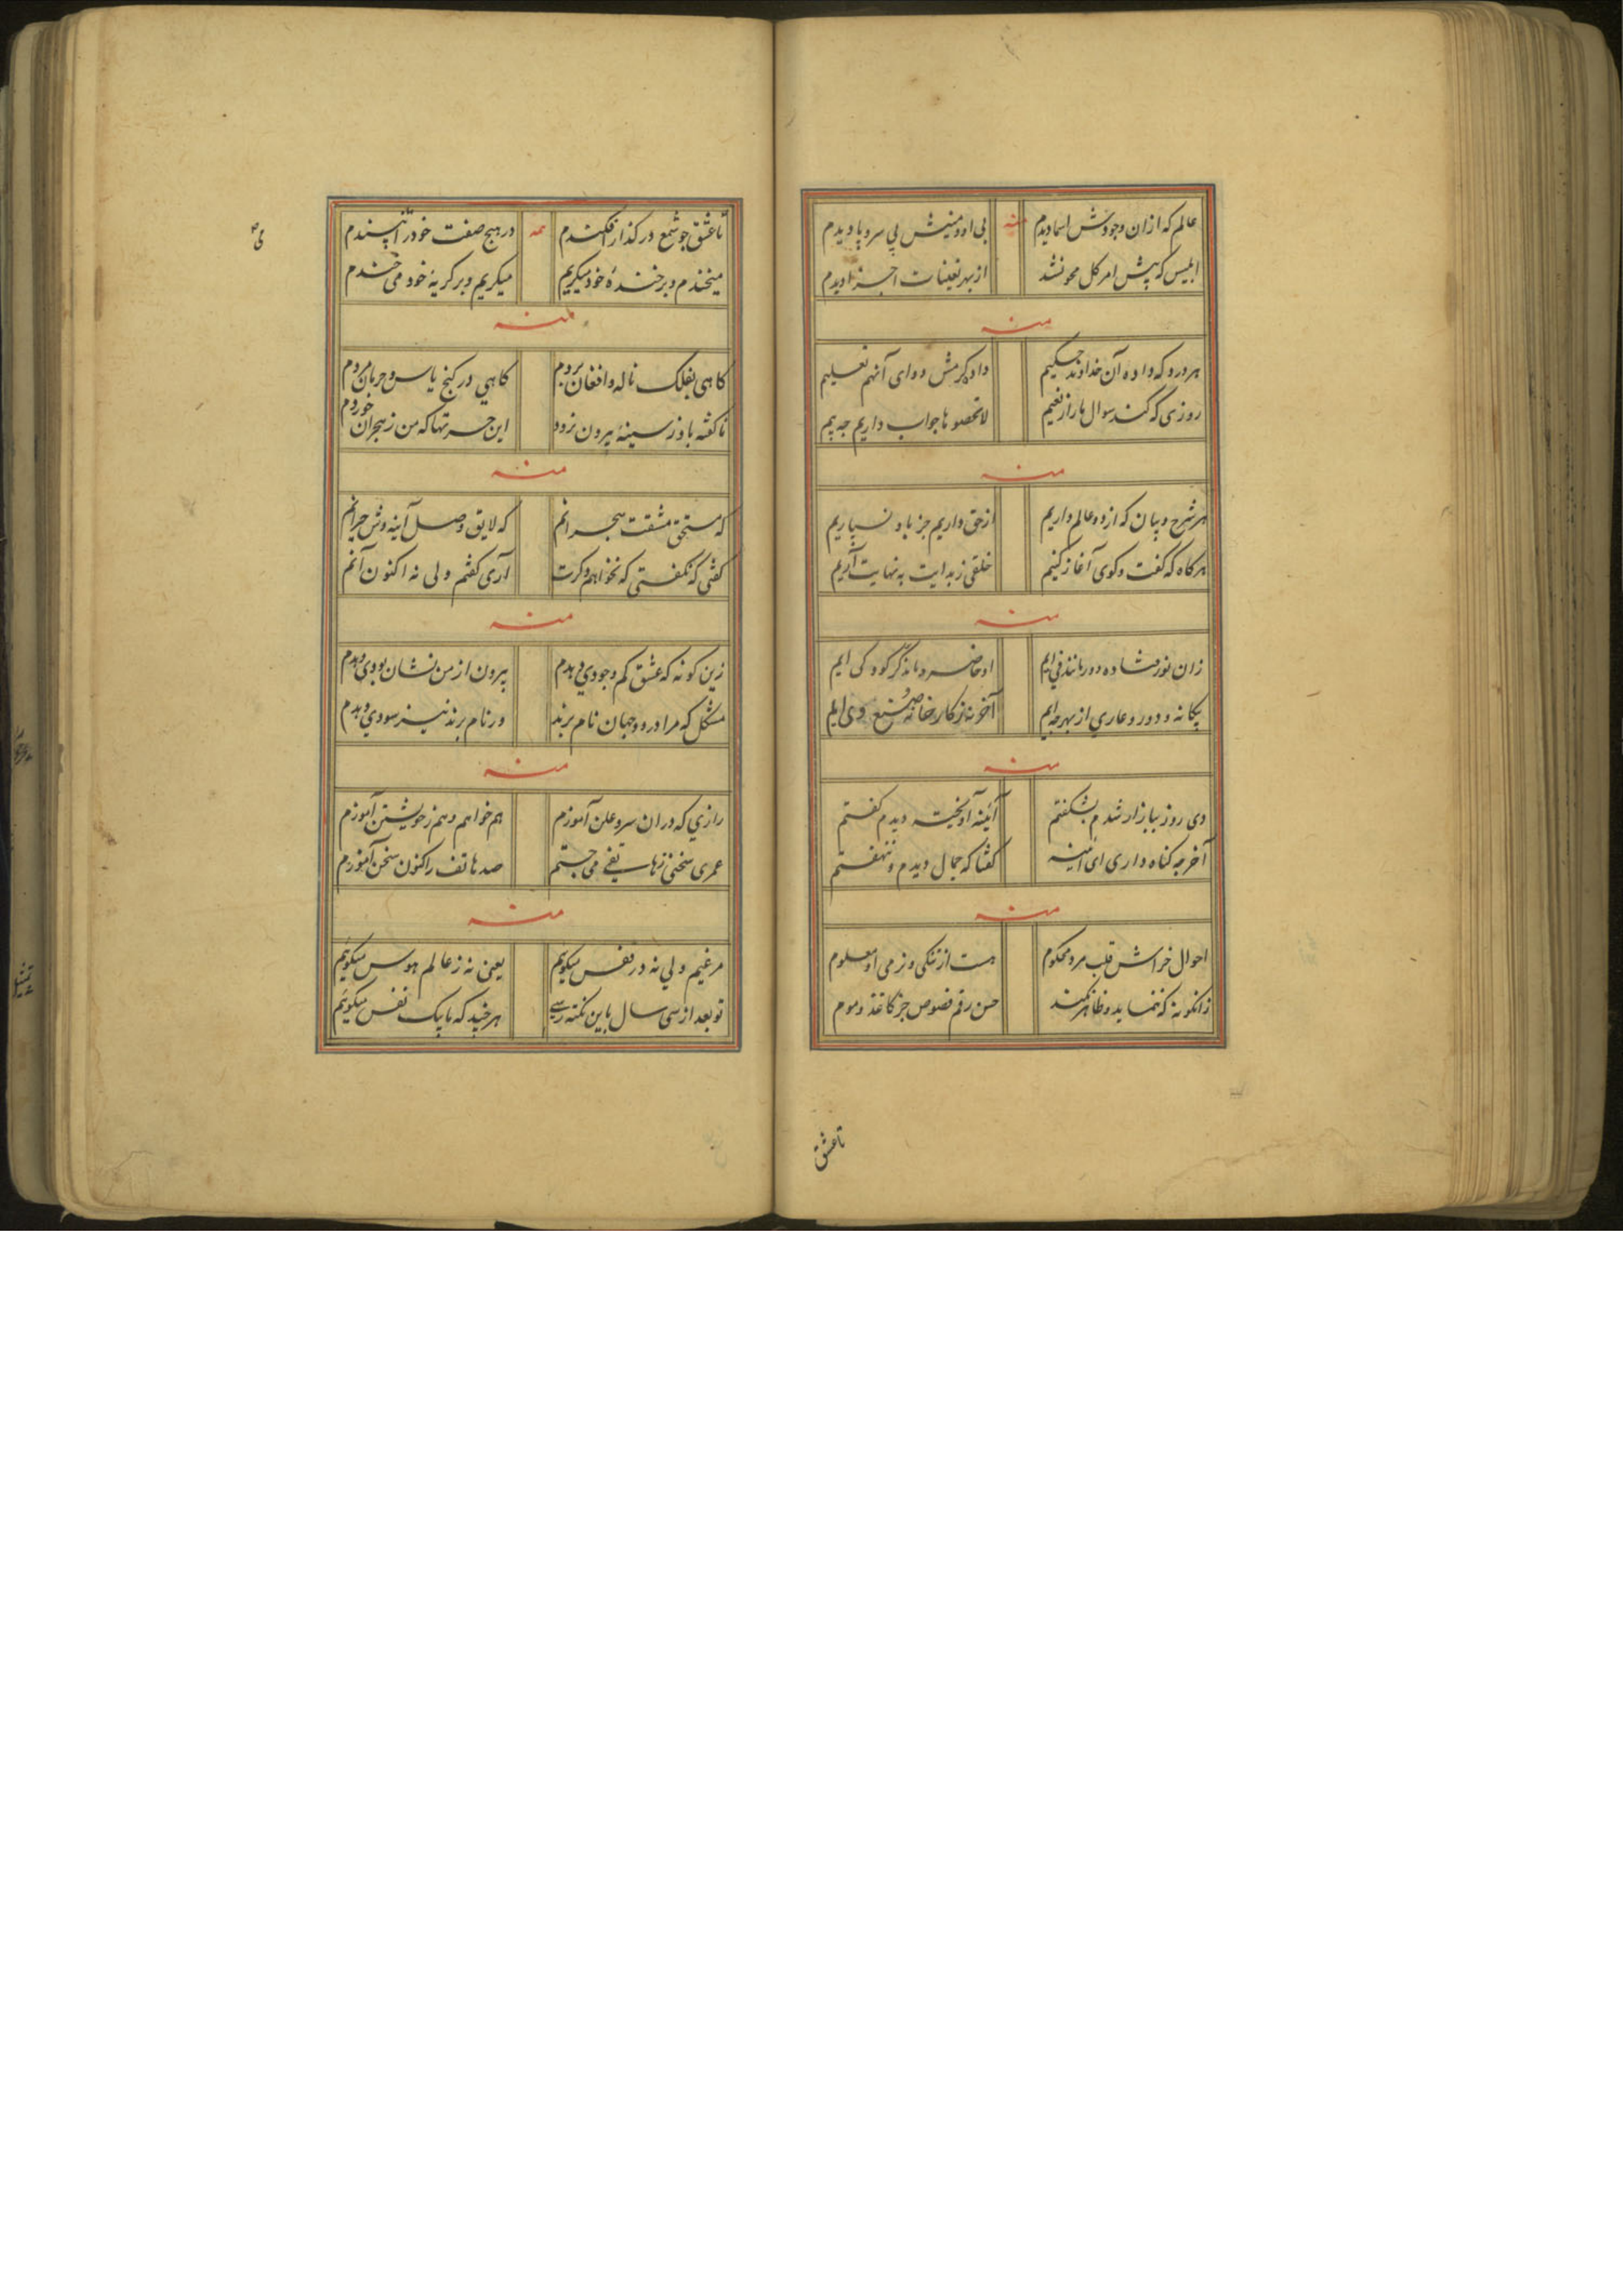 عالم که ازان وجودش اسما دیدم منه بی او و منیش بی سر و پا دیدم
ابلیس که پیش امر کل محو نشد از بهر تعینات اجزا دیدم
منه
هر درد که داده آن خداوند حکیم داد کرمش دوای آنهم تعلیم
روزی که کند سوال ما را ز نعیم لاتحصوها جواب داریم چه بیم
منه
هر شرح و بیان که از دو عالم داریم از حق داریم جز باو نسپاریم
هرگاه که گفت و گوی آغاز کنیم خلقی ز بدایت به نهایت آریم
منه
زان نور فتاده دور مانند فی ایم او حاضر و ما نه گر کود کی ایم
بیگانه و دور و عاری از بهر چه ایم آخر نه ز کارخانه صنع وی ایم
منه
دی روز ببازار شدم بشکفتم آئینه آویخته دیدم گفتم
آخر چه گناه داری ای آئینه گفتا که جمال دیدم و ننهفتم
منه
احوال خراش قلب مرد محکوم هست از تنگی و نرمی او معلوم
زانگونه که ننماید و ظاهر نکند حسن رقم فصوص جز کاغذ و موم
تا عشق
تا عشق چو شمع در گداز افکندم منه در هیچ صفت خود را نپسندم
میخندم و بر خندهٔ خود میگریم میگریم و بر گریهٔ خود می خندم
منه
گاهی بفلک ناله و افغان بردم گاهی در کنج یاس و حرمان مردم
ناگفته باو ز سینهٔ بیرون نرود این حسرتها که من ز هجران خوردم
منه
که مستحق مشقت هجرانم که لایق وصل آینه وش حیرانم
گفتی که نگفتی که نخواهم دگرت آری گفتم ولی نه اکنون آنم
منه
زین گونه که عشق کم وجودی دهدم بیرون از من نشان بودی دهدم
مشکل که مرا در دو جهان نام برند ور نام برند نیز سودی دهدم
منه
رازی که دران سر و علن آموزم هم خواهم و هم ز خویشتن آموزم
عمری سخنی ز هاتفی می جستم صد هاتف را کنون سخن آموزم
منه
مرغیم ولی نه در قفس میگوییم یعنی نه ز عالم هوس میگوییم
تو بعد از سی سال باین نکته رسی هر چند که ما بیک نفس میگوییم